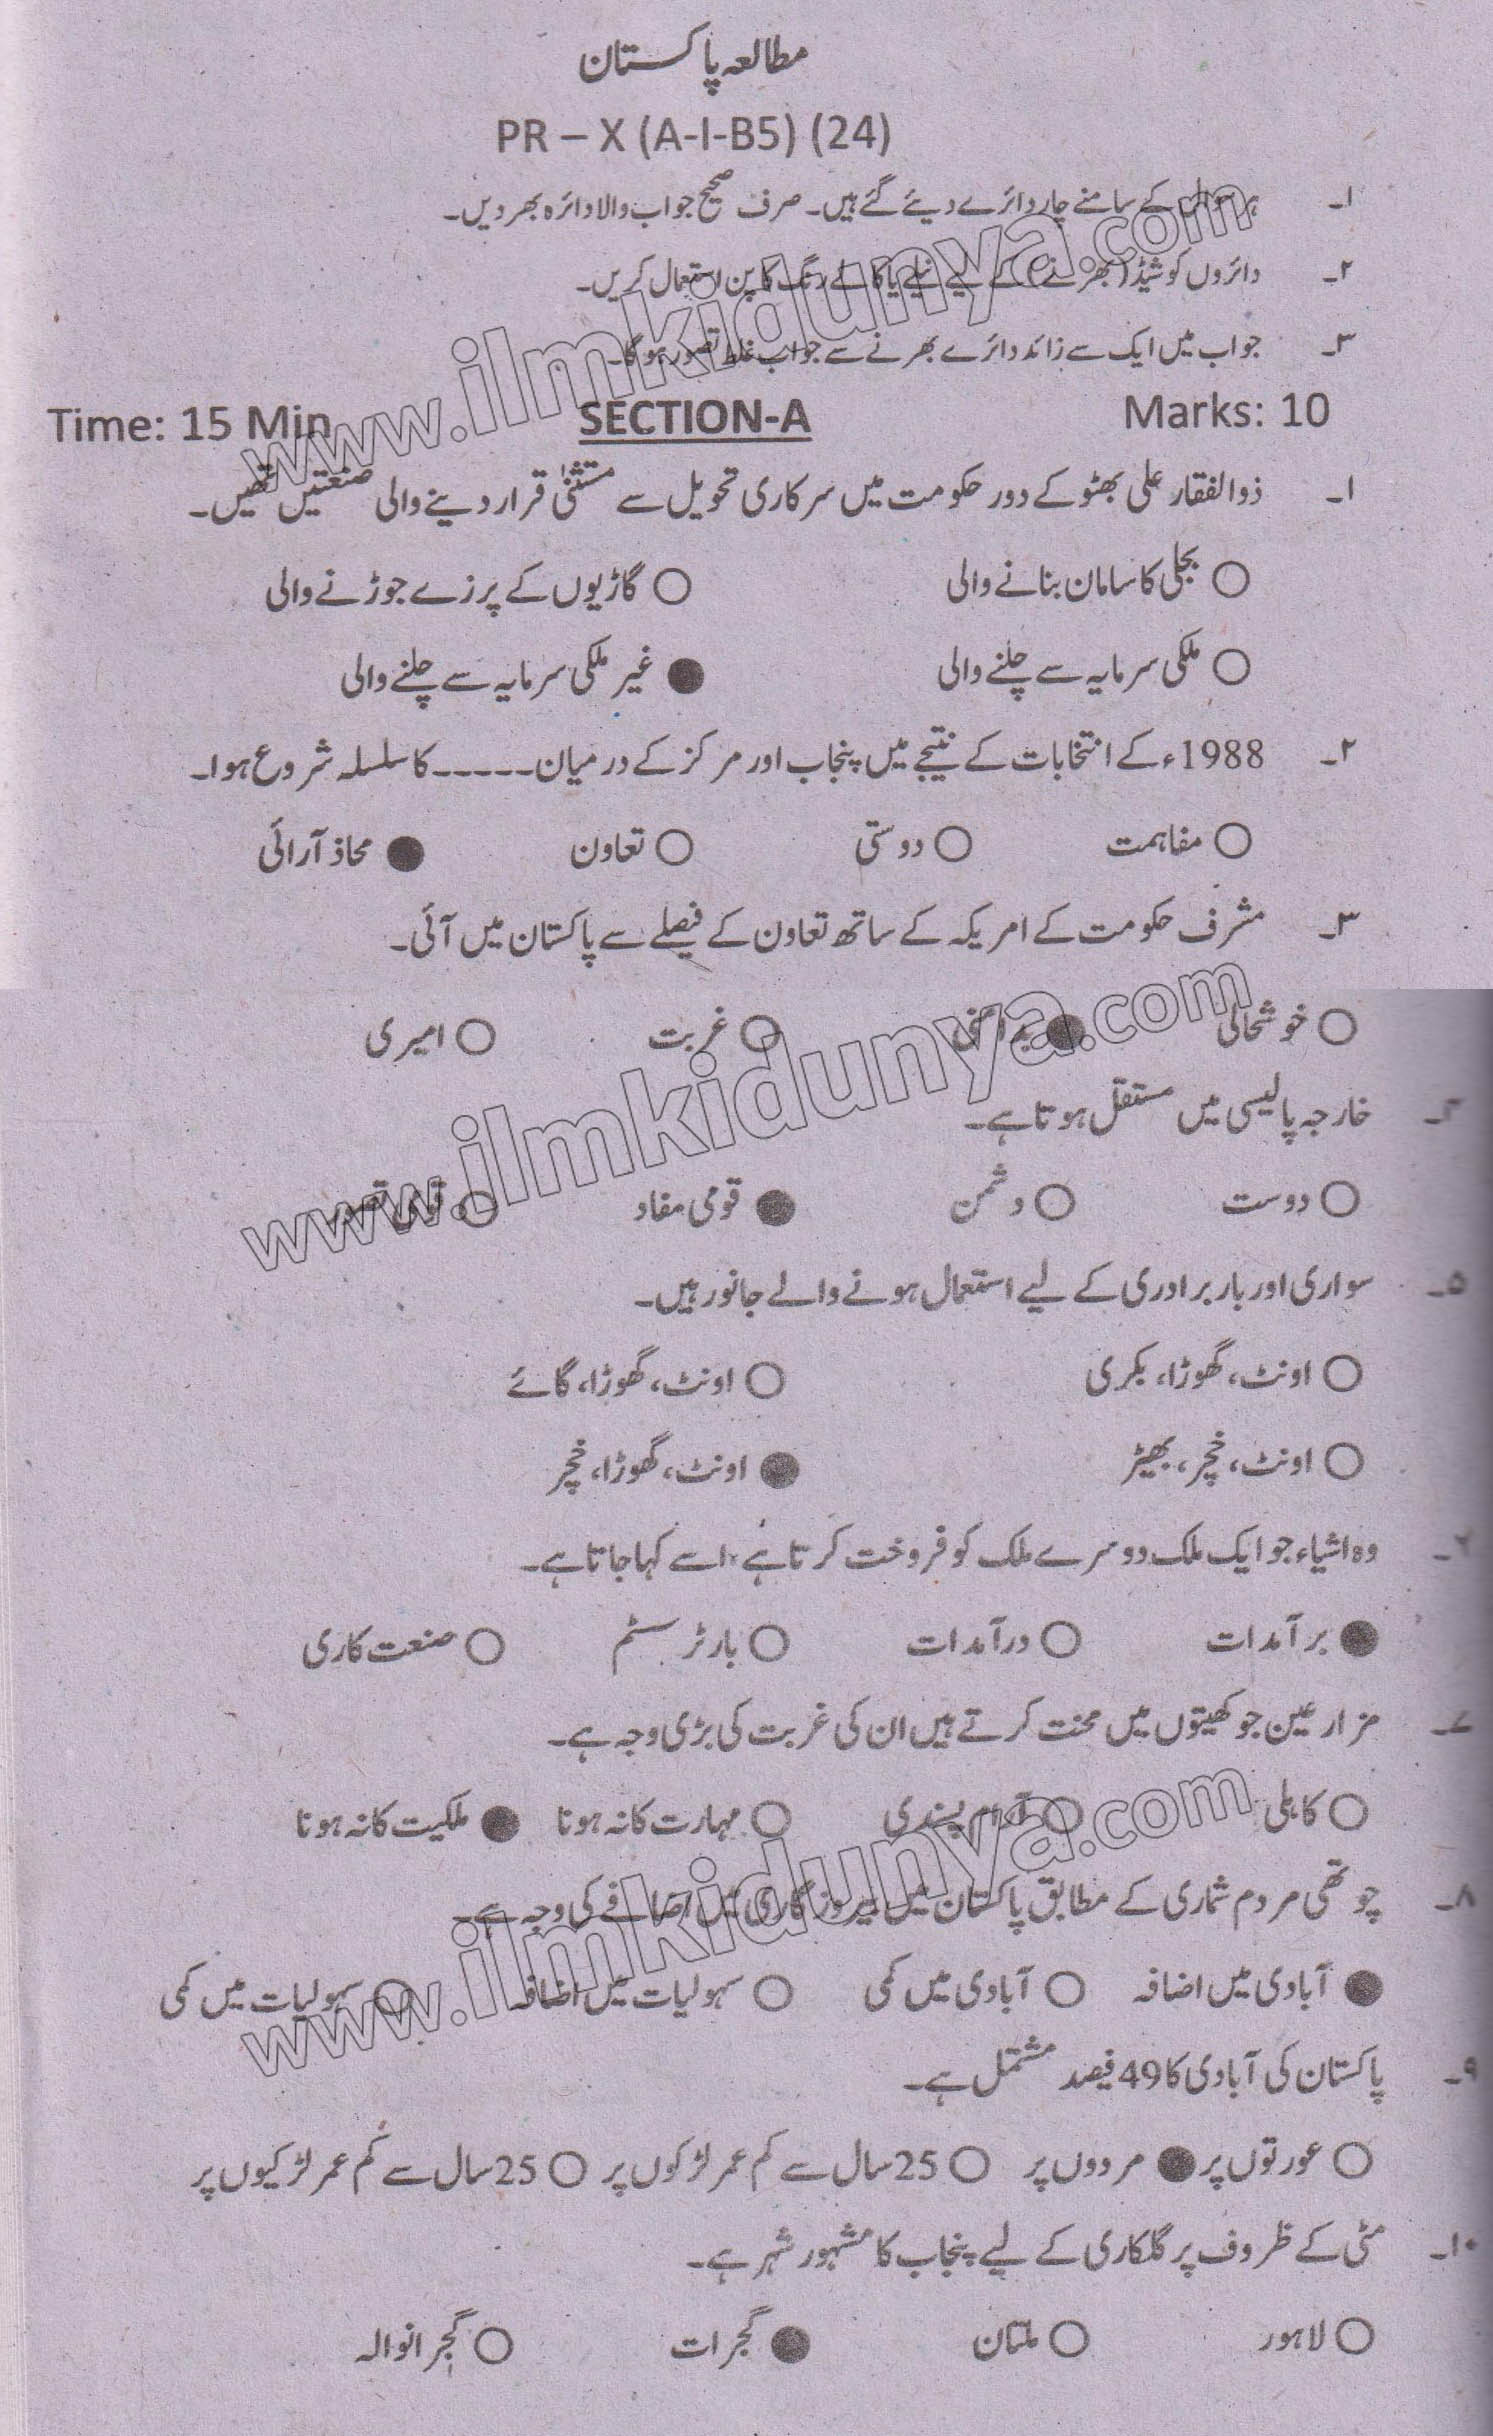 مطالعہ پاکستان
PR – X (A-I-B5) (24)
۱۔ ہر سوال کے سامنے چار دائرے دیئے گئے ہیں۔ صرف صحیح جواب والا دائرہ بھر دیں۔
۲۔ دائروں کو شیڈ (بھرنے) کے لیے نیلے یا کالے رنگ کا پن استعمال کریں۔
۳۔ جواب میں ایک سے زائد دائرے بھرنے سے جواب غلط تصور ہوگا۔
www.ilmkidunya.com
Time: 15 Min SECTION-A Marks: 10
۱۔ ذوالفقار علی بھٹو کے دور حکومت میں سرکاری تحویل سے مستثنیٰ قرار دینے والی صنعتیں تھیں۔
○ بجلی کا سامان بنانے والی ○ گاڑیوں کے پرزے جوڑنے والی
○ ملکی سرمایہ سے چلنے والی ● غیر ملکی سرمایہ سے چلنے والی
۲۔ 1988ء کے انتخابات کے نتیجے میں پنجاب اور مرکز کے درمیان ----- کا سلسلہ شروع ہوا۔
○ مفاہمت ○ دوستی ○ تعاون ● محاذ آرائی
۳۔ مشرف حکومت کے امریکہ کے ساتھ تعاون کے فیصلے سے پاکستان میں آئی۔
○ خوشحالی ● بدامنی ○ غربت ○ امیری
www.ilmkidunya.com
۴۔ خارجہ پالیسی میں مستقل ہوتا ہے۔
○ دوست ○ دشمن ● قومی مفاد ○ قومی
۵۔ سواری اور باربرادری کے لیے استعمال ہونے والے جانور ہیں۔
○ اونٹ، گھوڑا، بکری ○ اونٹ، گھوڑا، گائے
○ اونٹ، خچر، بھیڑ ● اونٹ، گھوڑا، خچر
۶۔ وہ اشیاء جو ایک ملک دوسرے ملک کو فروخت کرتا ہے، اسے کہا جاتا ہے۔
● برآمدات ○ درآمدات ○ بارٹر سسٹم ○ صنعت کاری
۷۔ مزارعین جو کھیتوں میں محنت کرتے ہیں ان کی غربت کی بڑی وجہ ہے۔
○ کاہلی ○ آرام پسندی ○ مہارت کا نہ ہونا ● ملکیت کا نہ ہونا
www.ilmkidunya.com
۸۔ چوتھی مردم شماری کے مطابق پاکستان میں بیروزگاری میں اضافے کی وجہ ہے۔
● آبادی میں اضافہ ○ آبادی میں کمی ○ سہولیات میں اضافہ ○ سہولیات میں کمی
۹۔ پاکستان کی آبادی کا 49 فیصد مشتمل ہے۔
○ عورتوں پر ● مردوں پر ○ 25 سال سے کم عمر لڑکوں پر ○ 25 سال سے کم عمر لڑکیوں پر
۱۰۔ مٹی کے ظروف پر گلکاری کے لیے پنجاب کا مشہور شہر ہے۔
○ لاہور ○ ملتان ● گجرات ○ گجرانوالہ